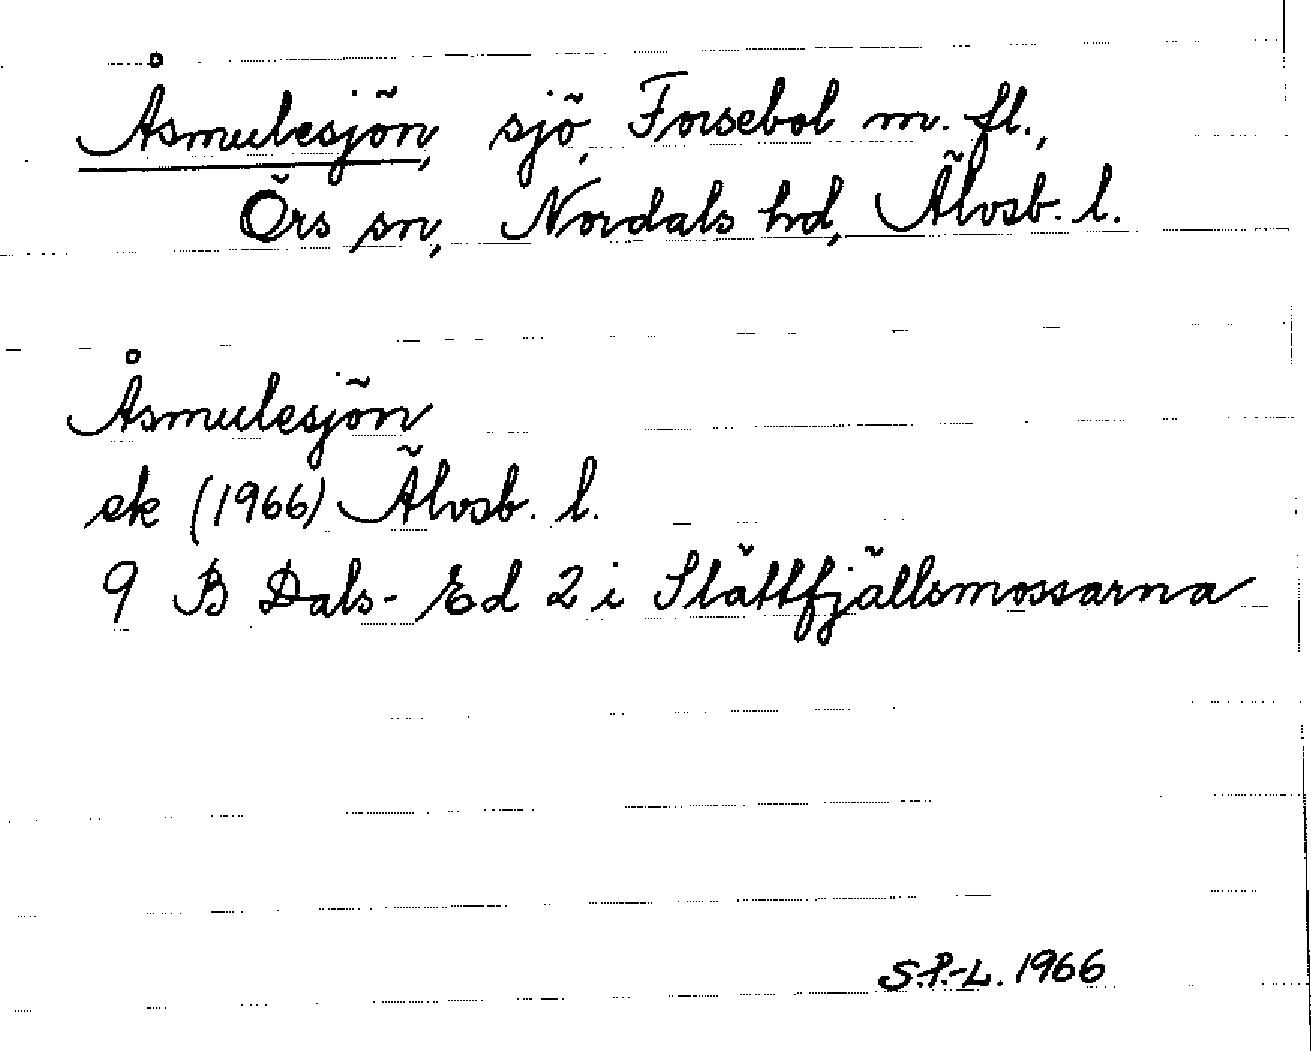 Åsmulesjön, sjö, Forsebol m. fl.,
Örs sn, Nordals hd, Älvsb. l.
Åsmulesjön
ek (1966) Älvsb. l.
9 B Dals-Ed 2 i Slättfjällsmossarna
S.P.-L. 1966